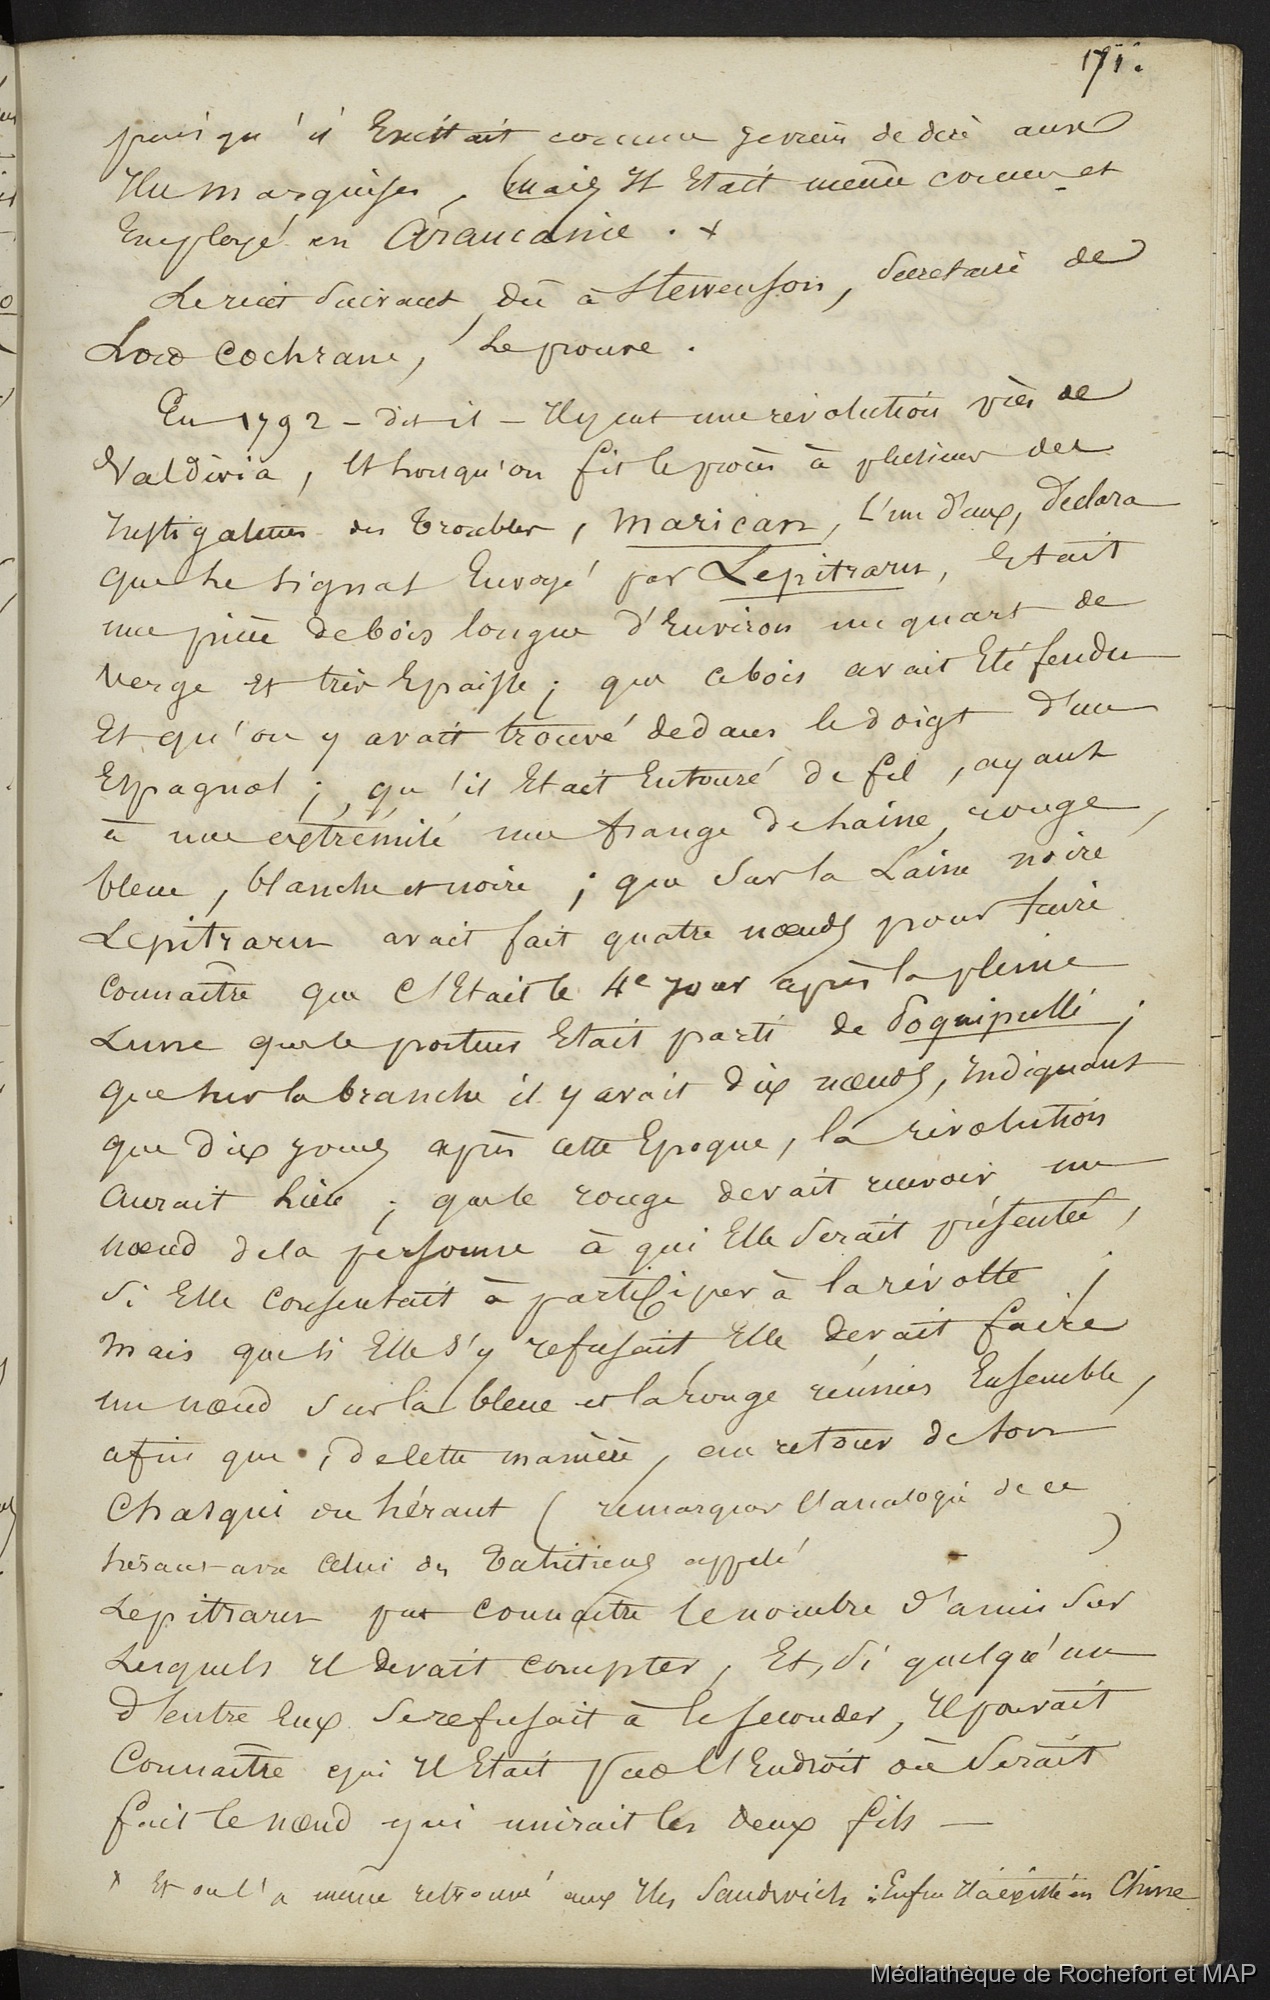 171.
puisqu'il Existait comme je viens de dire aux
Iles marquises, mais Il Etait même connu et
Employé en Araucanie . x
Le récit suivant, dû à Stewenson, Secretaire de
Lord Cochrane, le prouve .
En 1792 - dit-il - Il y eut une révolution près de
Valdivia, Et lorsqu'on fit le procès à plusieurs des
Instigateurs des troubles, marican, l'un d'eux, déclara
que le signal Envoyé par Lepitrarn, Etait
une pièce de bois longue d'Environ un quart de
verge et très Epaisse ; que ce bois avait Eté fendu
Et qu'on y avait trouvé dedans le doigt d'un
Espagnol ; qu'il Etait Entouré de fil, ayant
à une extrémité une frange de laine, rouge,
bleue, blanche et noire ; que sur la Laine noire
Lepitrarn avait fait quatre nœuds pour faire
connaître que c'Etait le 4e jour après la pleine
Lune que le porteur Etait parti de Poquipulli ;
que sur la branche il y avait dix nœuds, Indiquant
que dix jours après cette Epoque, la révolution
aurait lieu ; que le rouge devait recevoir un
nœud de la personne à qui Elle serait présentée,
si Elle consentait à participer à la révolte ;
mais que si Elle s'y refusait Elle devait faire
un nœud sur la bleue et la rouge réunies Ensemble,
afin que, de cette manière, au retour de son
Chasqui ou héraut ( remarquer l'analogie de ce
héraut avec celui des Tahitiens appelé )
Lepitrarn put connaître le nombre d'amis sur
lesquels Il devait compter, Et, si quelqu'un
d'entre Eux se refusait à le seconder, Il pouvait
connaître qui Il Etait par l'Endroit où serait
fait le nœud qui unirait les deux fils —
x Et on l'a même retrouvé aux Iles Sandwich ; Enfin Il a existé en Chine
Médiathèque de Rochefort et MAP